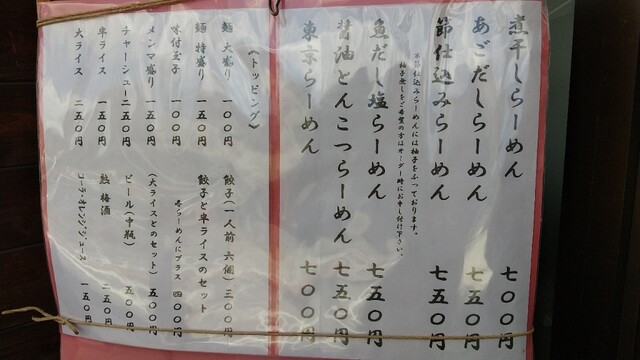 煮干しらーめん 七〇〇円
あごだしらーめん 七五〇円
節仕込みらーめん 七五〇円
※節仕込みらーめんには柚子をふっております。
柚子無しをご希望の方はオーダー時にお申し付け下さい。
魚だし塩らーめん 七五〇円
醤油とんこつらーめん 七五〇円
東京らーめん 七〇〇円
《トッピング》
麺大盛り 一〇〇円
麺特盛り 一五〇円
味付玉子 一〇〇円
メンマ盛り 一五〇円
チャーシュー 二五〇円
半ライス 一五〇円
大ライス 二五〇円
餃子(一人前 六個) 三〇〇円
餃子と半ライスのセット
各らーめんにプラス 四〇〇円
(大ライスとのセット) 五〇〇円
ビール(中瓶) 五〇〇円
梅酒 二五〇円
コーラ・オレンジジュース 一五〇円